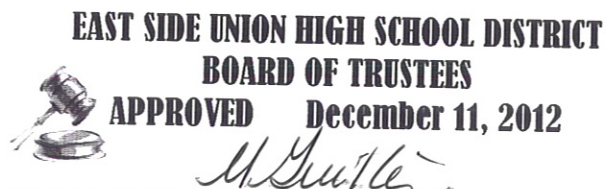 EAST SIDE UNION HIGH SCHOOL DISTRICT
BOARD OF TRUSTEES
APPROVED December 11, 2012